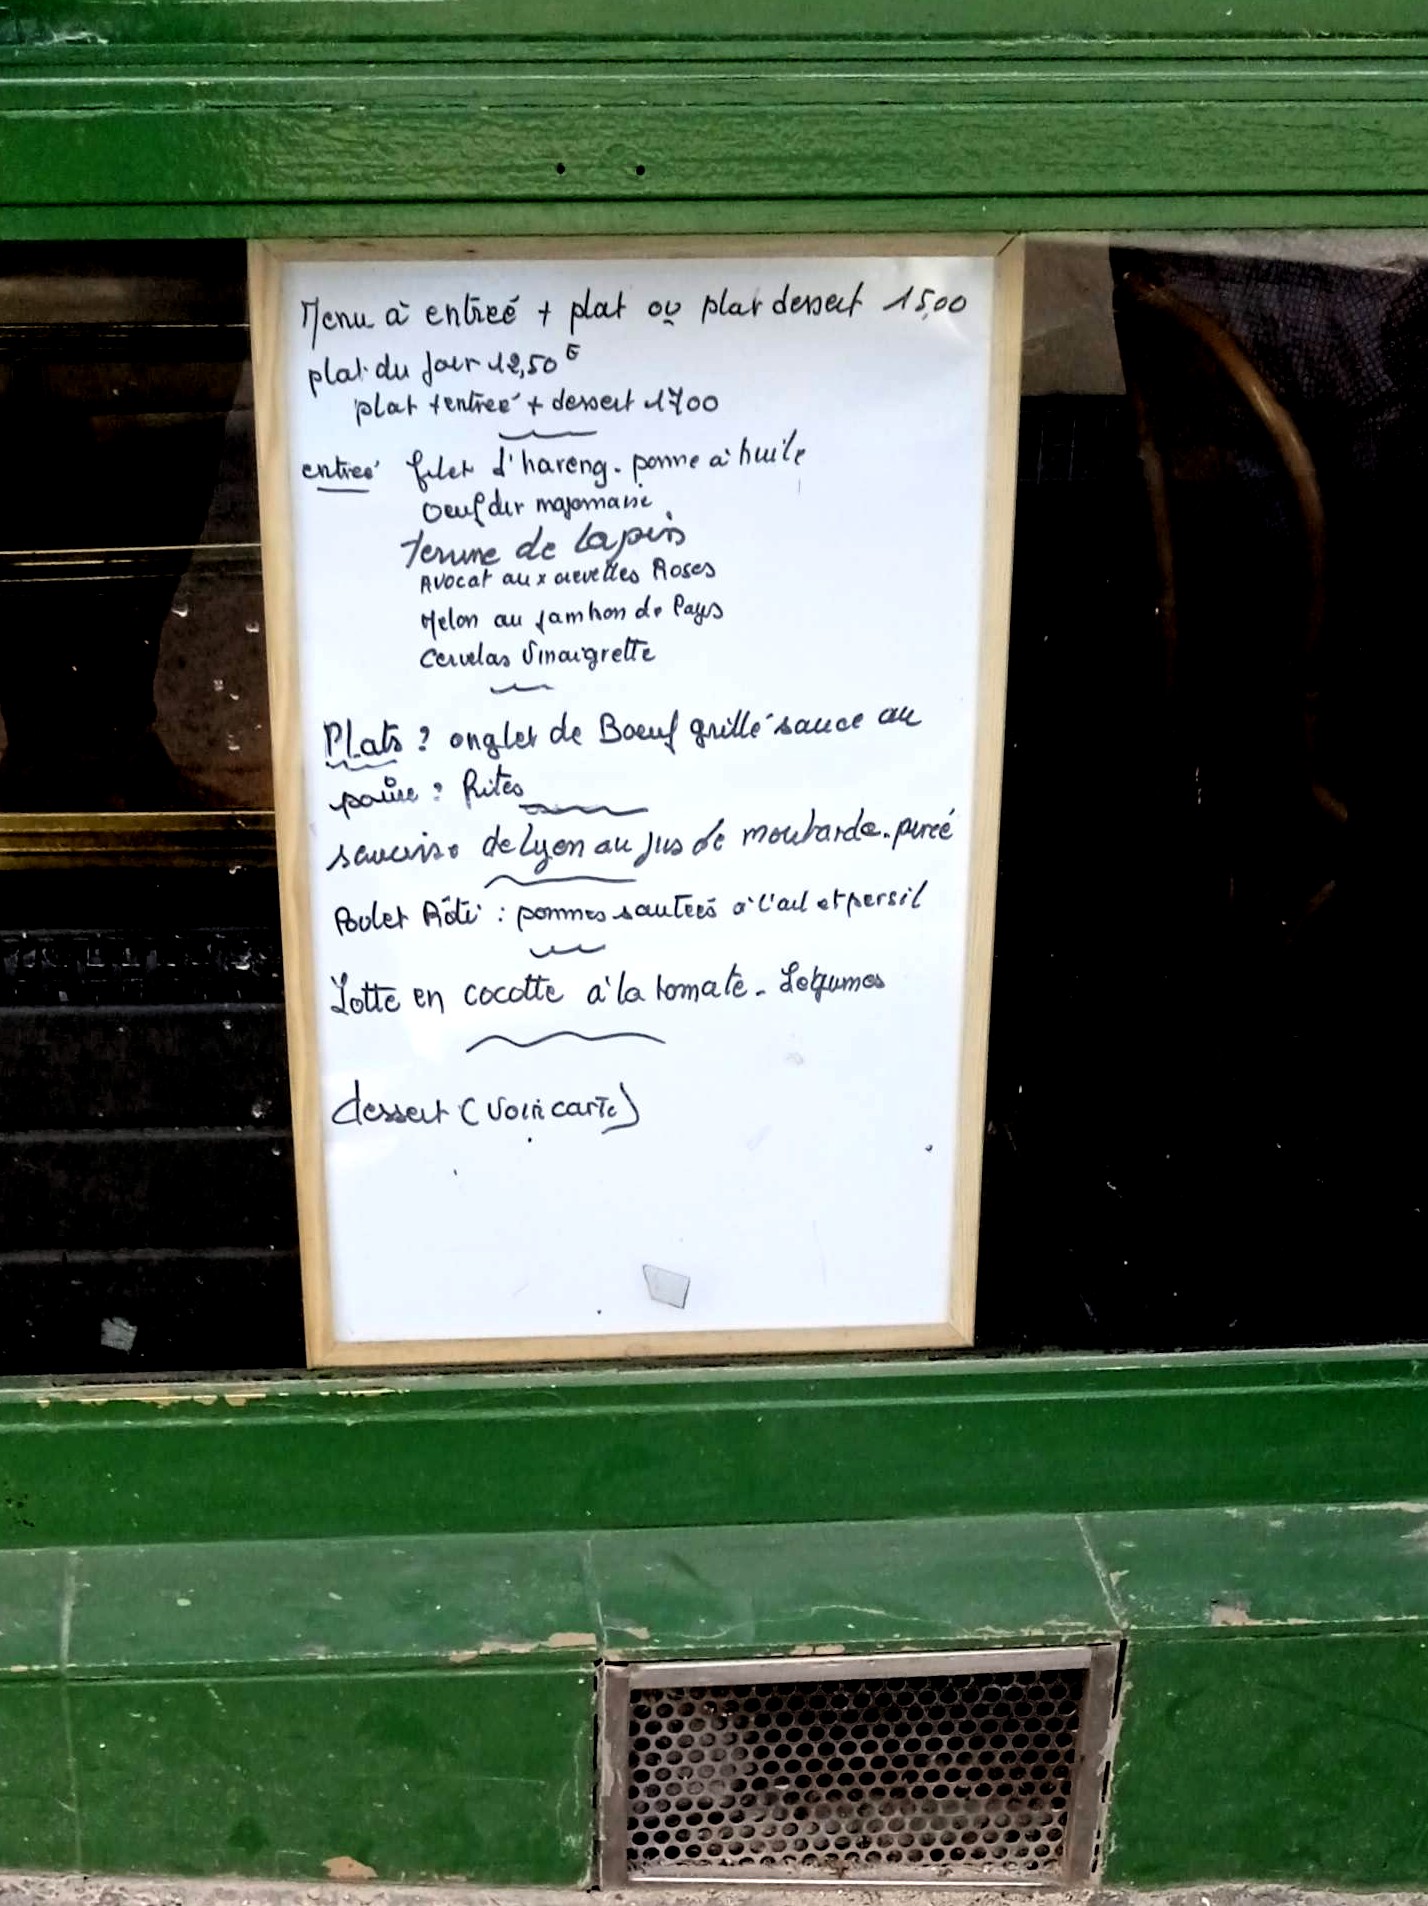 Menu à entreé + plat ou plat dessert 15,00
plat du Jour 12,50€
plat + entreé + dessert 1700
entreé filet d'hareng. pomme à huile
Oeuf dur mayonnaise
Terrine de Lapin
Avocat aux crevettes Roses
Melon au jambon de Pays
Cervelas Vinaigrette
Plats : onglet de Boeuf grillé sauce au
poivre : frites
saucisse de Lyon au jus de moutarde. pureé
Poulet Rôti : pommes sauteés à l'ail et persil
Lotte en cocotte à la tomate - Legumes
dessert (Voir carte)